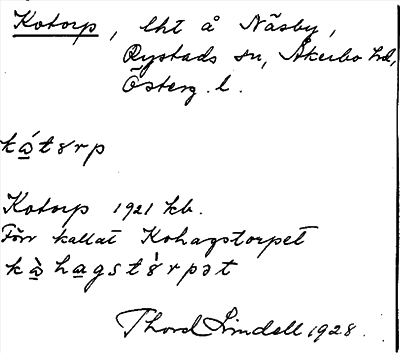 Kotorp, lht å Näsby,
Rystads sn, Åkerbo hd,
Österg. l.
Kotorp 1921 kb.
Förr kallat Kohagstorpet
Thord Lindell 1928.